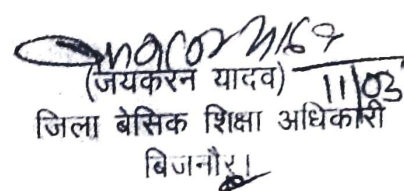 (जयकरन यादव)
11/03
जिला बेसिक शिक्षा अधिकारी
बिजनौर।